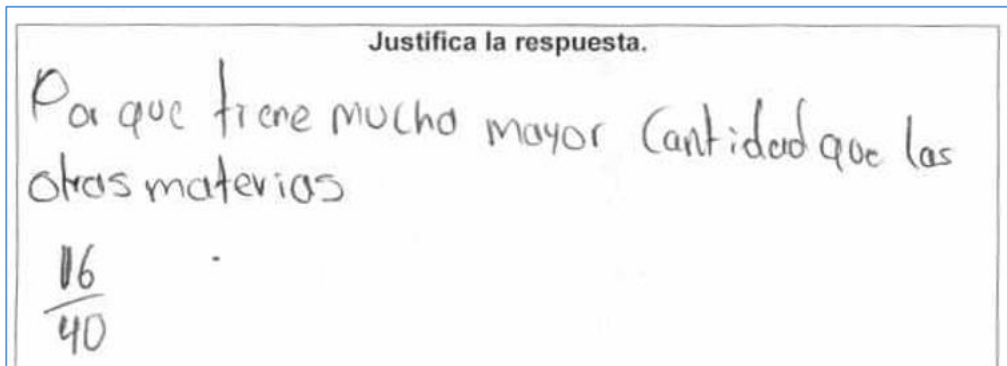 Justifica la respuesta.
Por que tiene mucho mayor Cantidad que las
otras materias
16
40